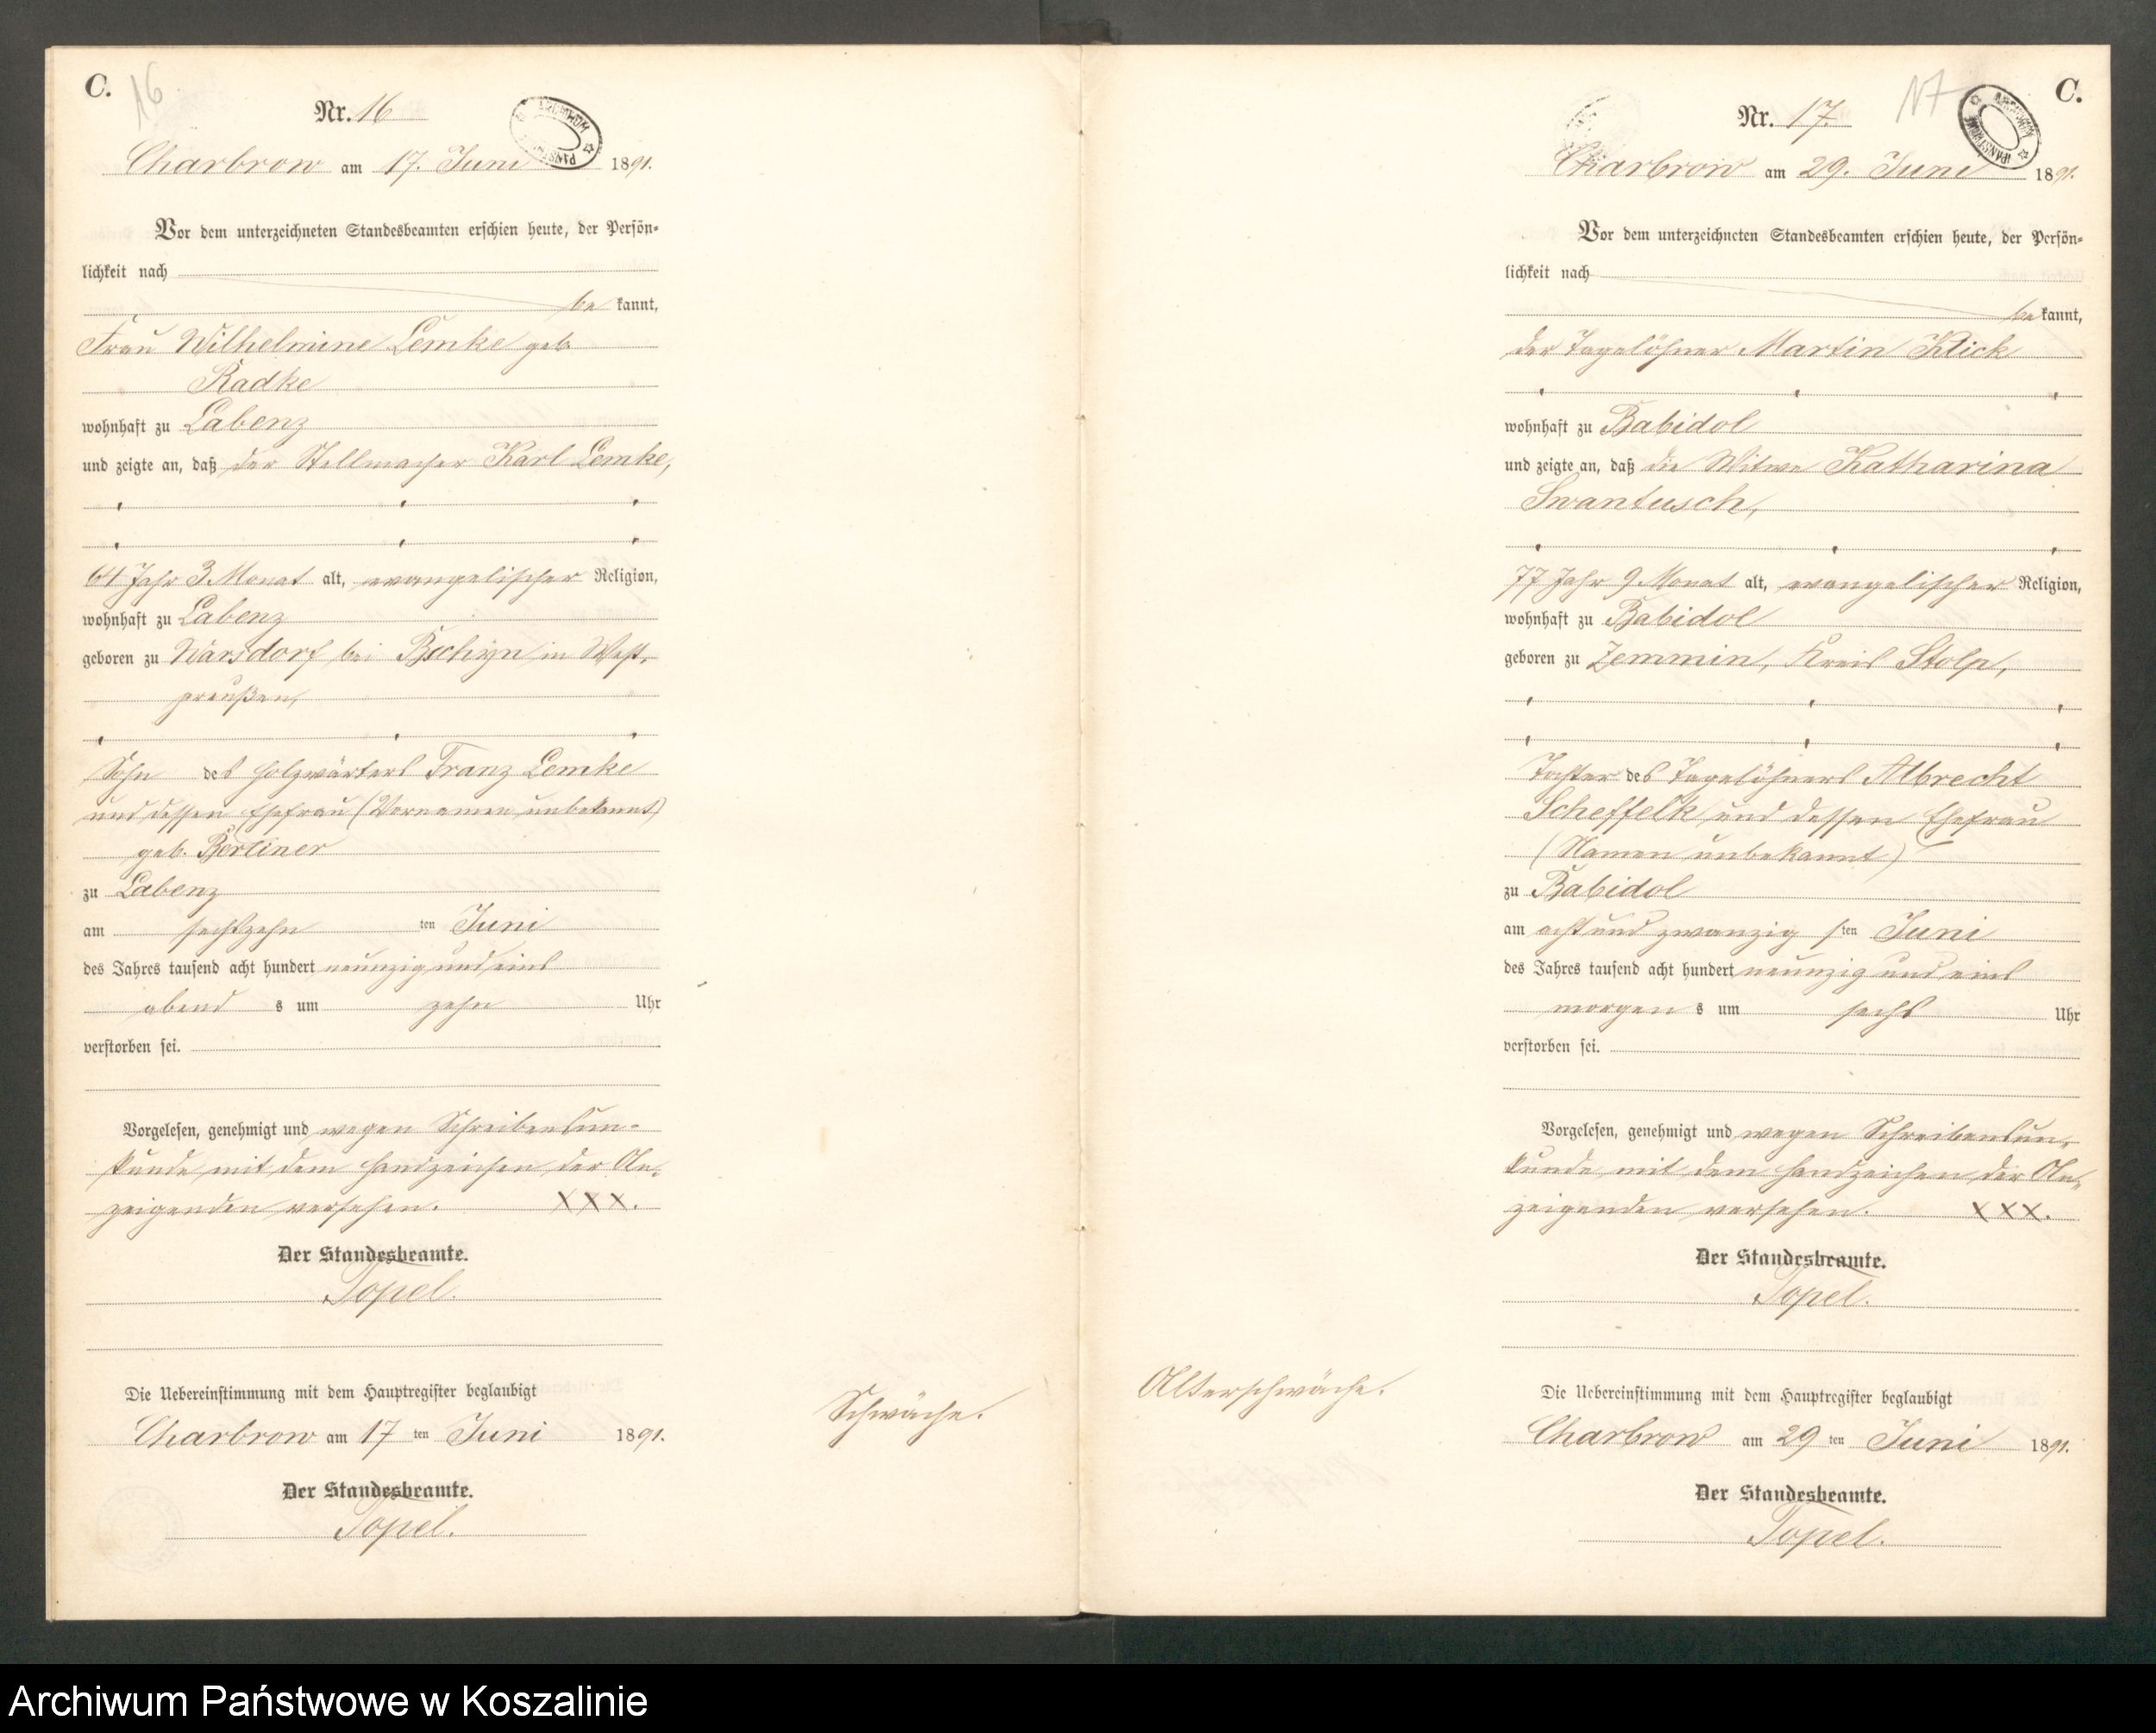 C.
16
Nr. 16
Charbrow am 17. Juni 1891.
Vor dem unterzeichneten Standesbeamten erschien heute, der Persön-
lichkeit nach
be kannt,
Frau Wilhelmine Lemke geb.
Radke
wohnhaft zu Labenz
und zeigte an, daß der Stellmacher Karl Lemke,
64 Jahr 3 Monat alt, evangelischer Religion,
wohnhaft zu Labenz
geboren zu Warsdorf bei in West-
preußen,
Sohn des Holzwärters Franz Lemke
und dessen Ehefrau (Vornamen unbekannt)
geb. Berliner
zu Labenz
am sechszehn ten Juni
des Jahres tausend acht hundert neunzig und eins
abend s um zehn Uhr
verstorben sei.
Vorgelesen, genehmigt und wegen Schreibensun-
kunde mit dem Handzeichen der An-
zeigenden versehen. XXX.
Der Standesbeamte.
Topel.
Die Uebereinstimmung mit dem Hauptregister beglaubigt
Charbrow am 17 ten Juni 1891.
Der Standesbeamte.
Topel.
Schwäche.
C.
17
Nr. 17.
Charbrow am 29. Juni 1891.
Vor dem unterzeichneten Standesbeamten erschien heute, der Persön-
lichkeit nach
be kannt,
der Tagelöhner Martin Klick
wohnhaft zu Babidol
und zeigte an, daß die Witwe Katharina
Swantusch,
77 Jahr 9 Monat alt, evangelischer Religion,
wohnhaft zu Babidol
geboren zu Zemmin, Kreis Stolp,
Tochter des Tagelöhners Albrecht
Scheffelk und dessen Ehefrau
(Namen unbekannt)
zu Babidol
am acht und zwanzig sten Juni
des Jahres tausend acht hundert neunzig und eins
morgen s um sechs Uhr
verstorben sei.
Vorgelesen, genehmigt und wegen Schreibensun-
kunde mit dem Handzeichen der An-
zeigenden versehen. XXX.
Der Standesbeamte.
Topel.
Alterschwäche.
Die Uebereinstimmung mit dem Hauptregister beglaubigt
Charbrow am 29 ten Juni 1891.
Der Standesbeamte.
Topel.
Archiwum Państwowe w Koszalinie